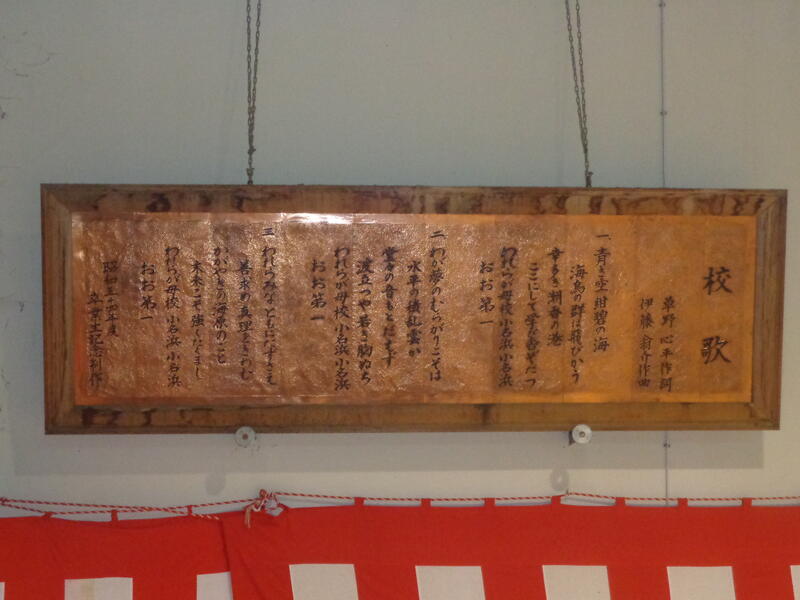 校歌
草野心平作詞
伊藤翁介作曲
一 青き空紺碧の海
海鳥の群は飛びかう
幸多き潮香の港
ここにして学び舎ぞたつ
われらが母校小名浜小名浜
おお第一
二 わが夢のむらがりこそは
水平の積乱雲か
の音もとだえず
波立つや若き胸ぬち
われらが母校小名浜小名浜
おお第一
三 われらみなともにたずさえ
善求め真理をきわむ
かがやきの海原のごと
未来こそ強くたくまし
われらが母校小名浜小名浜
おお第一
昭和五十四年度
卒業生記念制作